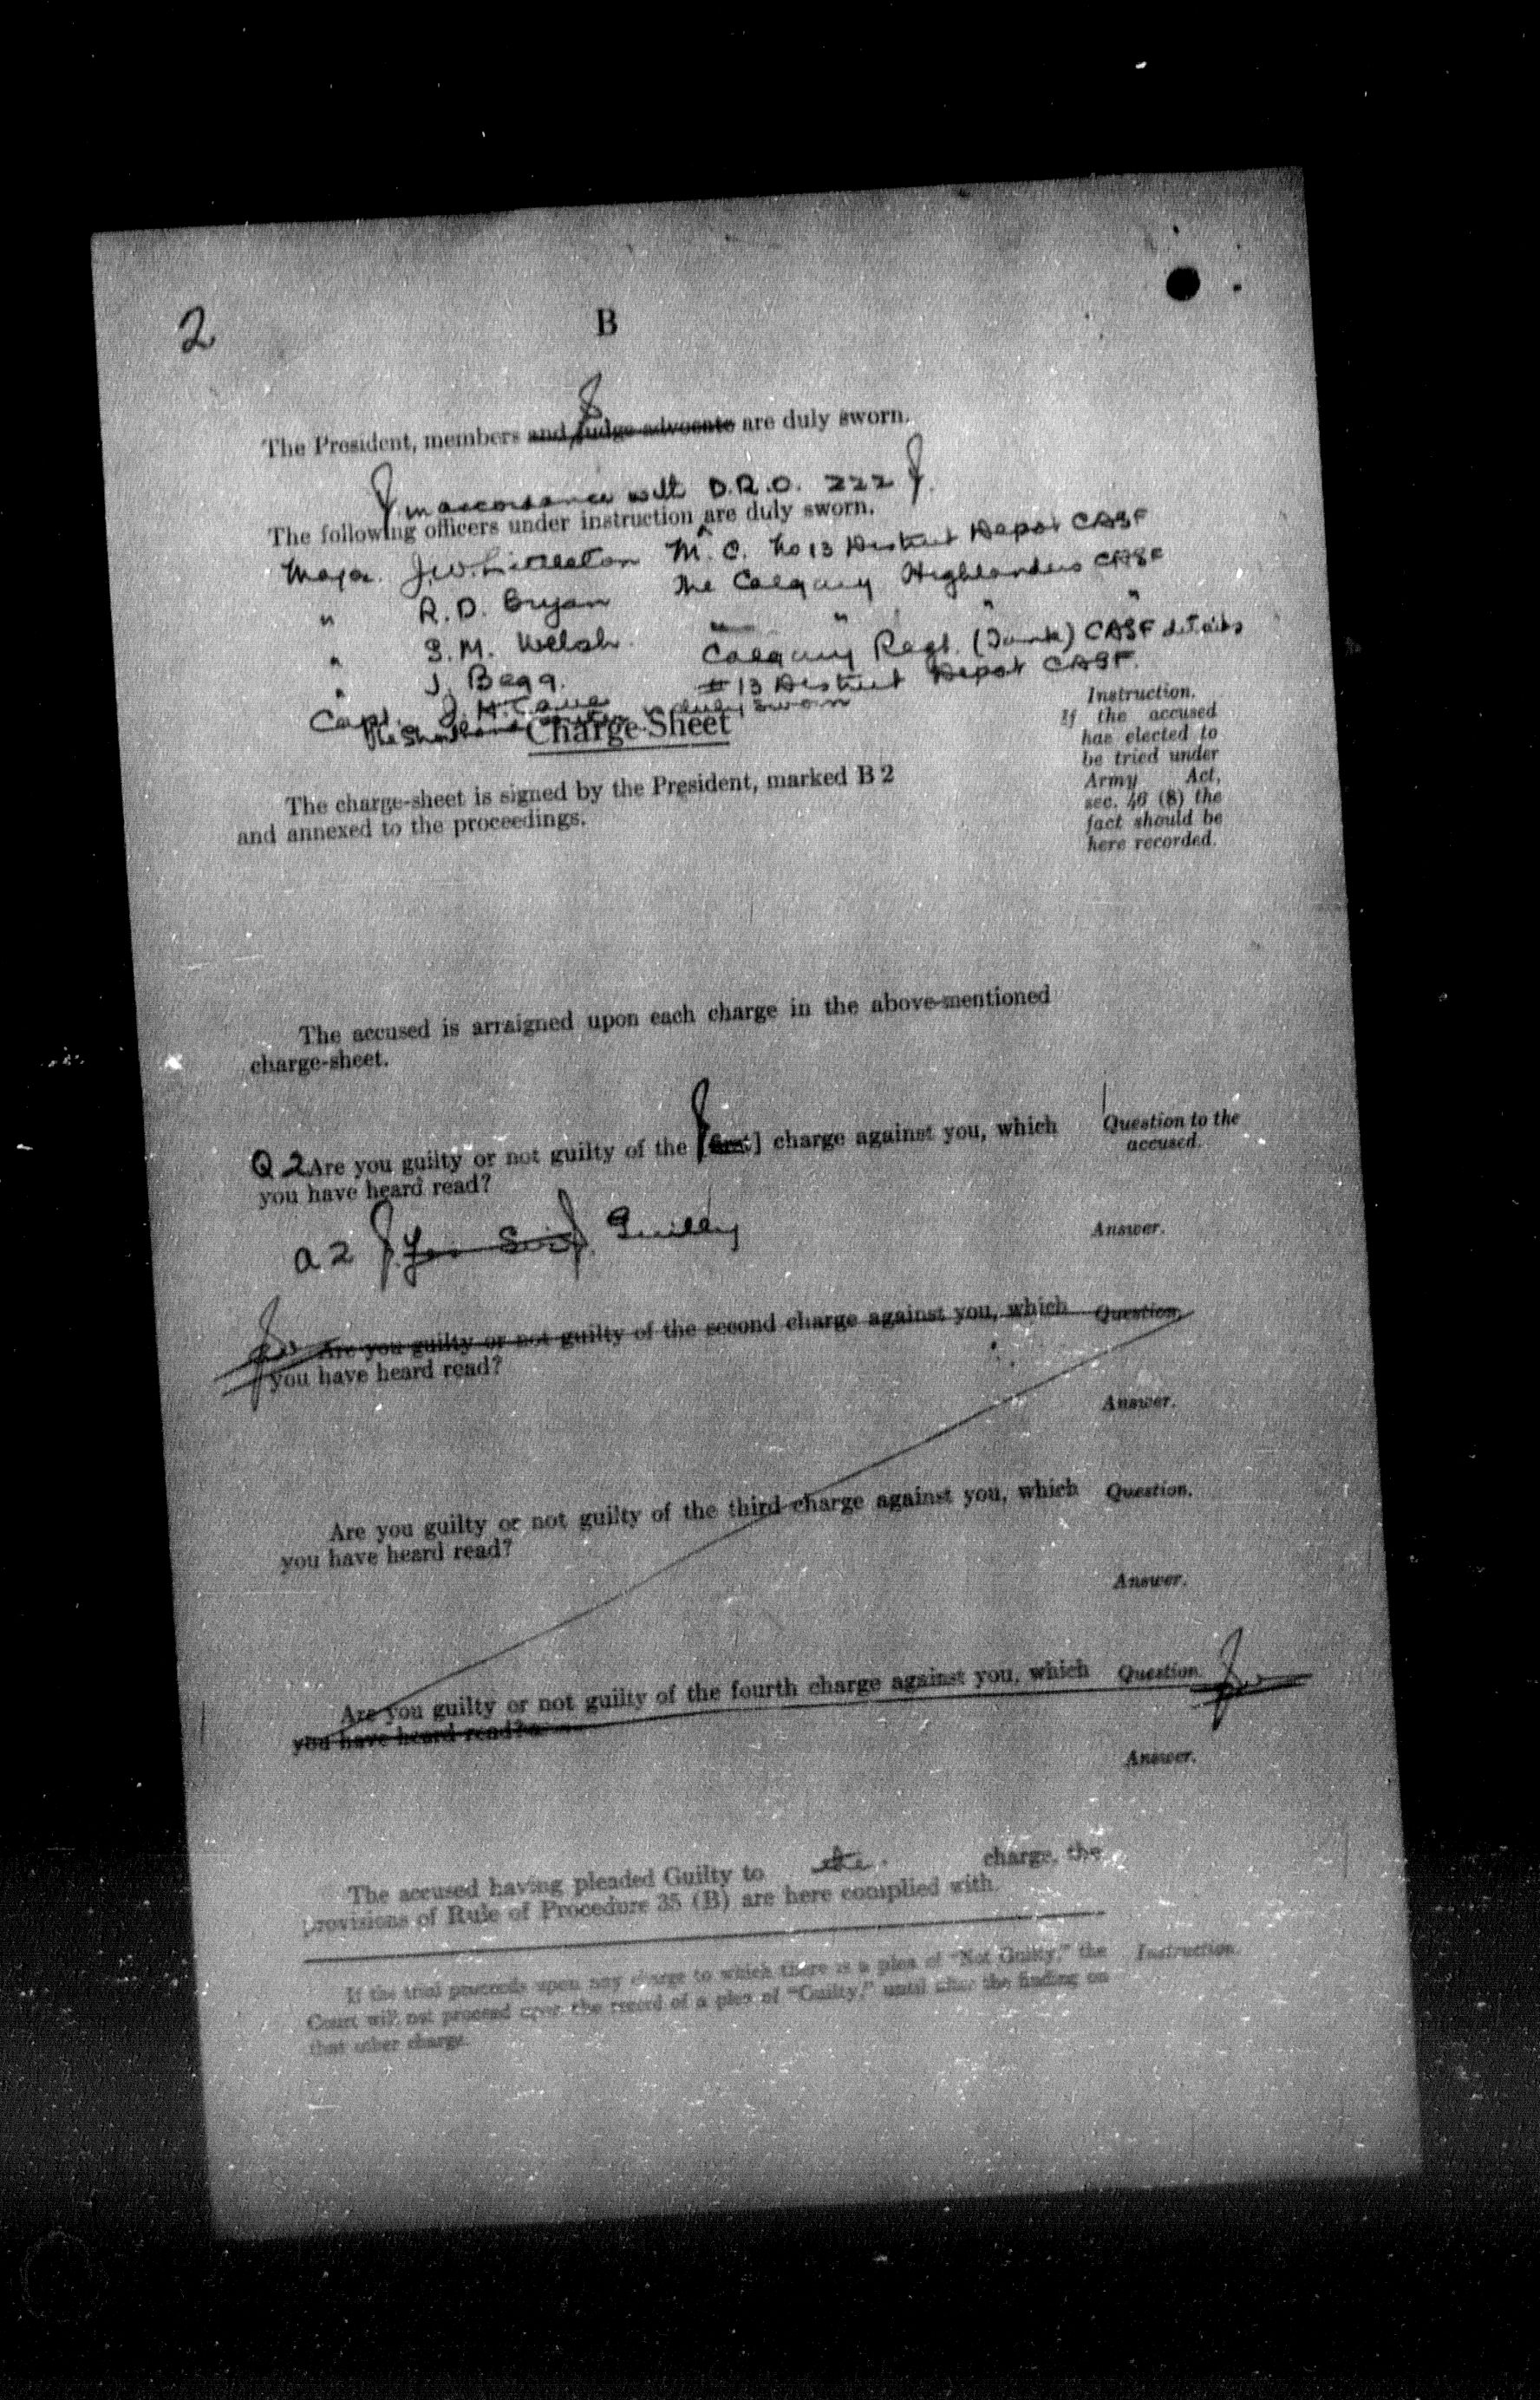 2
B
The President, members and judge-advocate are duly sworn.
in accordance with D.R.O. 222
The following officers under instruction are duly sworn.
Major. J.W. Littleton M.C. No 13 District Depot CASF
" R.D. Bryan The Calgary Highlanders CASF
" S.M. Welsh. " " " "
" J. Begg. Calgary Regt. (Tank) CASF details
Capt. J.H. # 13 District Depot CASF.
The Shorthand writer is duly sworn
Charge-Sheet
Instruction.
If the accused
has elected to
be tried under
Army Act,
sec. 46 (8) the
fact should be
here recorded.
The charge-sheet is signed by the President, marked B 2
and annexed to the proceedings.
The accused is arraigned upon each charge in the above-mentioned
charge-sheet.
Q 2 Are you guilty or not guilty of the [first] charge against you, which
you have heard read?
Question to the
accused.
A 2 Yes Sir. Guilty
Answer.
Are you guilty or not guilty of the second charge against you, which Question.
you have heard read?
Answer.
Are you guilty or not guilty of the third charge against you, which Question.
you have heard read?
Answer.
Are you guilty or not guilty of the fourth charge against you, which Question.
you have heard read?
Answer.
The accused having pleaded Guilty to the charge, the
provisions of Rule of Procedure 35 (B) are here complied with.
If the trial proceeds upon any charge to which there is a plea of "Not Guilty," the Instruction.
Court will not proceed upon the record of a plea of "Guilty," until after the finding on
that other charge.